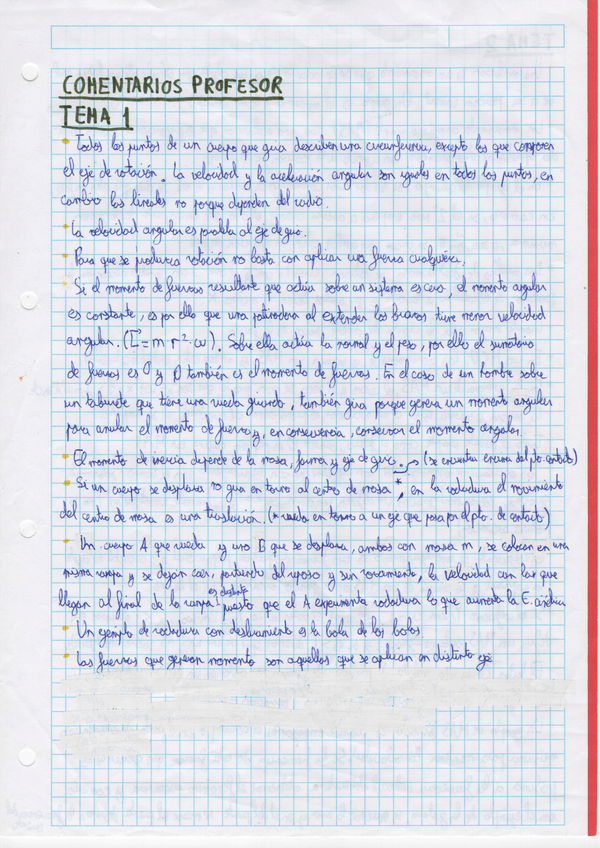 COMENTARIOS PROFESOR
TEMA 1
Todos los puntos de un cuerpo que gira describen una circunferencia, excepto los que componen
el eje de rotación. La velocidad y la aceleración angular son iguales en todos los puntos, en
cambio las lineales no porque dependen del radio.
La velocidad angular es paralela al eje de giro.
Para que se produzca rotación no basta con aplicar una fuerza cualquiera.
Si el momento de fuerzas resultante que actúa sobre un sistema es cero, el momento angular
es constante, es por ello que una patinadora al extender los brazos tiene menor velocidad
angular. (L = m r² · ω). Sobre ella actúa la normal y el peso, por ello el sumatorio
de fuerzas es 0 y también es el momento de fuerzas. En el caso de un hombre sobre
un taburete que tiene una rueda girando, también gira porque genera un momento angular
para anular el momento de fuerza y, en consecuencia, conservar el momento angular.
El momento de inercia depende de la masa, forma y eje de giro. (se encuentra encima del pto. contacto)
Si un cuerpo se desplaza no gira en torno al centro de masa *, en la rodadura el movimiento
del centro de masa es una traslación. (* rueda en torno a un eje que pasa por el pto. de contacto)
Un cuerpo A que rueda y uno B que se desplaza, ambos con masa m, se colocan en una
misma rampa y se dejan caer, partiendo del reposo y sin rozamiento, la velocidad con la que
llegan al final de la rampa es distinta puesto que el A experimenta rodadura lo que aumenta la E. cinética
Un ejemplo de rodadura con deslizamiento es la bola de los bolos.
Las fuerzas que generan momento son aquellas que se aplican en distinto eje